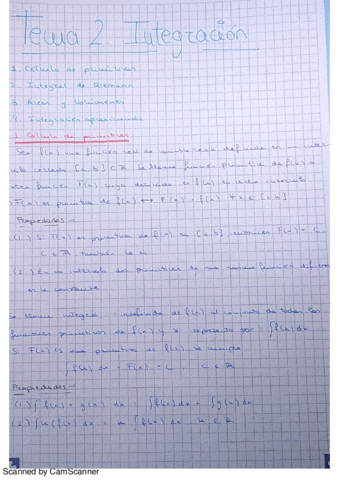 Tema 2. Integración
1. Cálculo de primitivas
2. Integral de Riemann
3. Áreas y Volúmenes
4. Integración aproximada
1. Cálculo de primitivas
Sea f(x) una función real de variable real definida en un inter-
valo cerrado [a,b] ⊂ ℝ. Se llama función primitiva de f(x) a
otra función F(x) cuya derivada es f(x) en dicho intervalo
F(x) es primitiva de f(x) ↔ F'(x) = f(x) ∀x ∈ [a,b]
Propiedades:
(1.) Si F(x) es primitiva de f(x) en [a,b], entonces F(x) + C,
C ∈ ℝ, también lo es
(2.) En un intervalo dos primitivas de una misma función difieren
en la constante
Se llama integral indefinida de f(x) al conjunto de todas las
funciones primitivas de f(x) y se representa por: ∫f(x)dx
Si F(x) es una primitiva de f(x), se cumple
∫f(x)dx = F(x) + C, C ∈ ℝ
Propiedades:
(1.) ∫f(x) + g(x) dx = ∫f(x)dx + ∫g(x)dx
(2.) ∫k(f(x) dx = k ∫f(x) dx k ∈ ℝ
Scanned by CamScanner